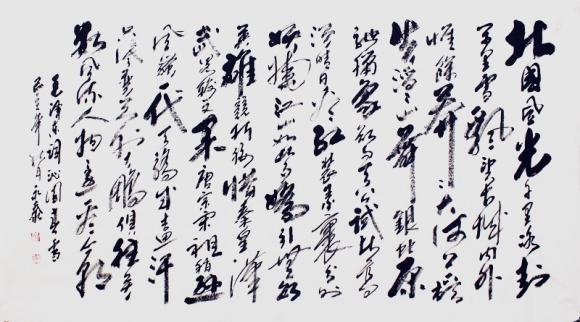 北國风光千里冰封
万里雪飘望长城内外
惟餘莽〻大河上下顿
失滔〻山舞银蛇原
驰蜡象欲与天公试比高
须晴日看红装素裹分外
妖娆江山如此多娇引无数
英雄竞折腰惜秦皇漢
武略输文采唐宗宋祖稍逊
风骚一代天骄成吉思汗
只识弯弓射大鵰俱往矣
数风流人物还看今朝
毛泽东词沁园春雪